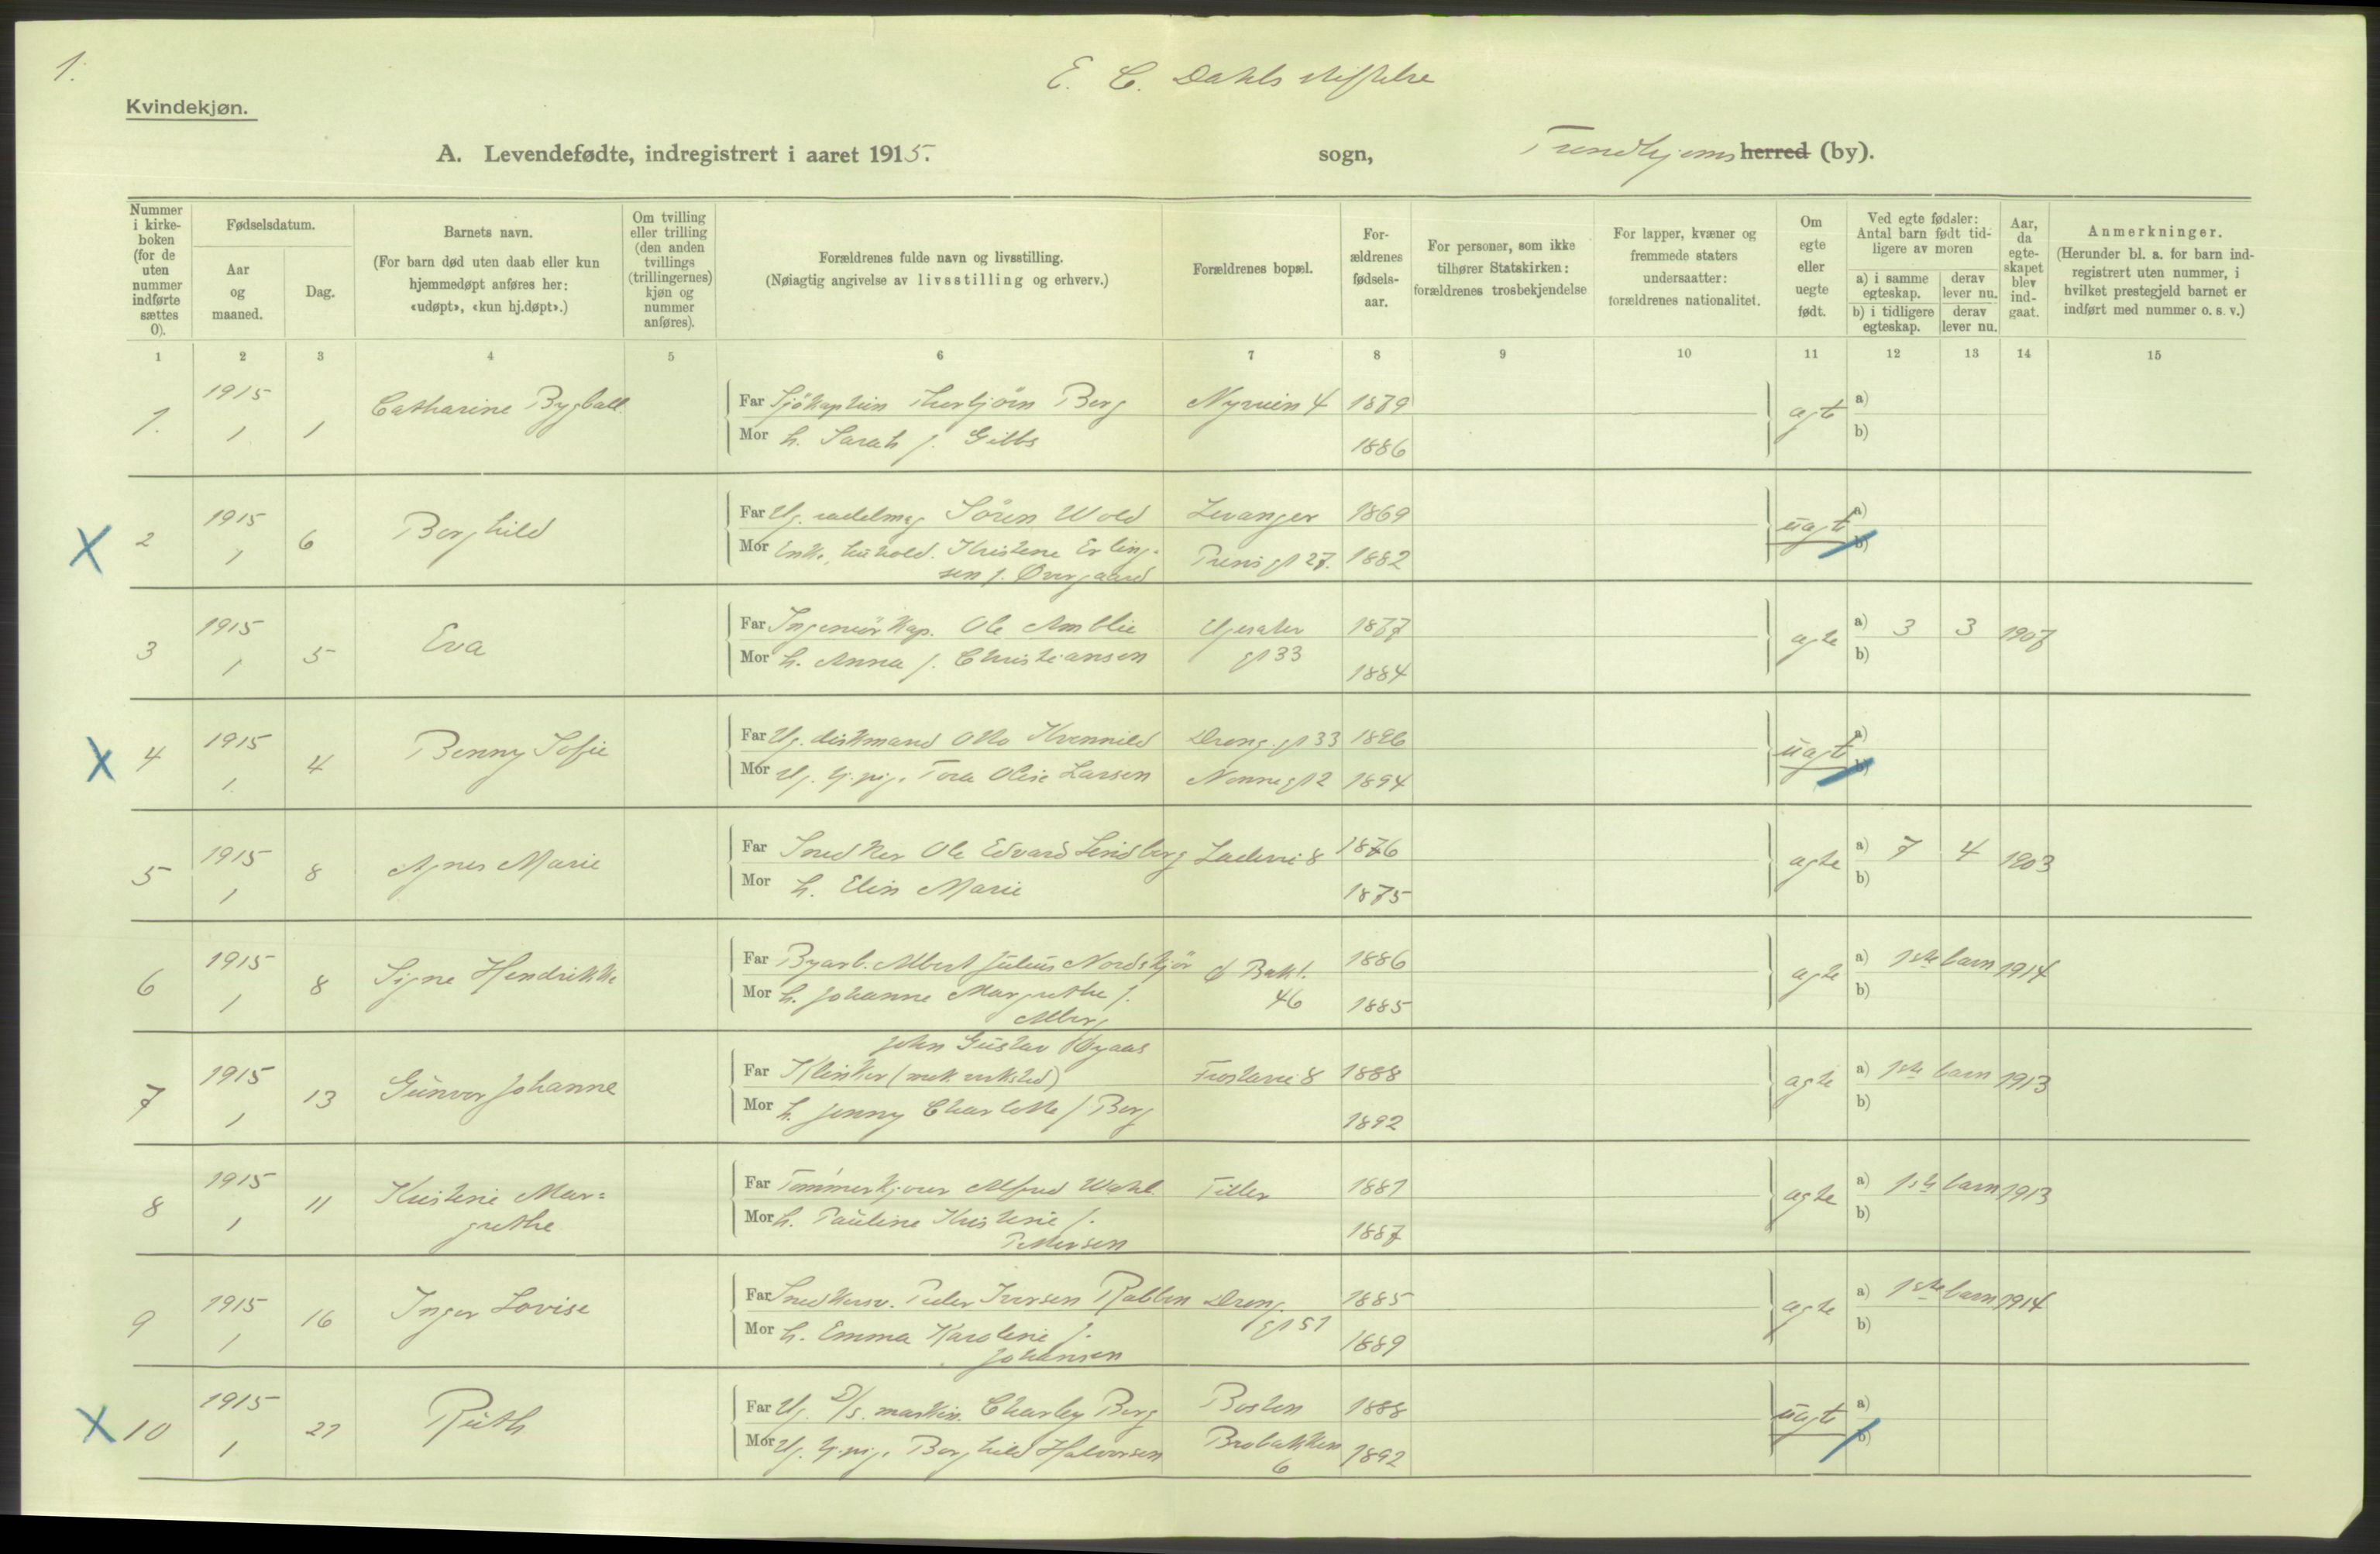 1.
E. C. Dahls stiftelse
Kvindekjøn.
A. Levendefødte, indregistrert i aaret 1915.
sogn,
Trondhjems herred (by).
Nummer i kirkeboken (for de uten nummer indførte sættes 0).
Fødselsdatum.
Aar og maaned.
Dag.
Barnets navn.
(For barn død uten daab eller kun hjemmedøpt anføres her: «udøpt», «kun hj.døpt».)
Om tvilling eller trilling (den anden tvillings (trillingernes) kjøn og nummer anføres).
Forældrenes fulde navn og livsstilling.
(Nøiagtig angivelse av livsstilling og erhverv.)
Forældrenes bopæl.
For-ældrenes fødsels-aar.
For personer, som ikke tilhører Statskirken: forældrenes trosbekjendelse
For lapper, kvæner og fremmede staters undersaatter: forældrenes nationalitet.
Om egte eller uegte født.
Ved egte fødsler: Antal barn født tid-ligere av moren
a) i samme egteskap.
derav lever nu.
b) i tidligere egteskap.
derav lever nu.
Aar, da egte-skapet blev ind-gaat.
Anmerkninger.
(Herunder bl. a. for barn ind-registrert uten nummer, i hvilket prestegjeld barnet er indført med nummer o. s. v.)
1 2 3 4 5 6 7 8 9 10 11 12 13 14 15
1. 1915 1 1 Catharine Bygball
Far Sjökaptein Thorbjörn Berg Nyveien 4 1879 a)
Mor h. Sarah f. Gibbs 1886 b)
X 2 1915 1 6 Borghild
Far Ug. sadelmag Sören Wold Levanger 1869 uegt a)
Mor Enke, hushold. Kristine Erling- Prinsgt 27. 1882 b)
sen f. Overgaard
3 1915 1 5 Eva
Far Ingeniörkap. Ole Amblie Ugesater 1877 egte a) 3 3 1907
Mor h. Anna f. Christiansen gt 33 1884 b)
X 4 1915 1. 4 Benny Sofie
Far Ug. diskmand Otto Kvennild Drong. gt 33 1896 uegt a)
Mor Ug. tj.pig. Tora Olise Larsen Nonnegt 2 1894 b)
5 1915 1 8 Agnes Marie
Far Snedker Ole Edvard Lindberg Ladevei 8 1876 egte a) 7 4 1903
Mor h. Elin Marie 1875 b)
6 1915 1 8 Signe Hendrikke
Far Byarb. Albert Julius Nordskjör Ö Bakl. 1886 egte a) 1ste barn 1914
Mor h. Johanne Margrethe f. 46 1885 b)
Alberg
7 1915 1 13 Gunvor Johanne
John Gustav Öyaas
Far Klinker (mek verksted) Frostavei 8 1888 egte a) 1ste barn 1913
Mor h. Jenny Charlotte f Berg 1892 b)
8 1915 1 11 Kristine Mar=
grethe
Far Tömmerkjører Alfred Wahl Tiller 1881 egte a) 1ste barn 1913
Mor h. Pauline Kristine f. 1887 b)
Pettersen
9 1915 1 16 Inger Lovise
Far Snedkersv. Peder Iversen Rabben Drong. 1885 egte a) 1ste barn 1914
Mor h. Emma Karoline f. gt 51 1889 b)
Johansen
X 10 1915 1 21 Ruth
Far Ug. D/s. maskin. Charley Berg Boston 1888 uegte a)
Mor Ug. tj.pig. Borghild Halvorsen Brobakken 1892 b)
6